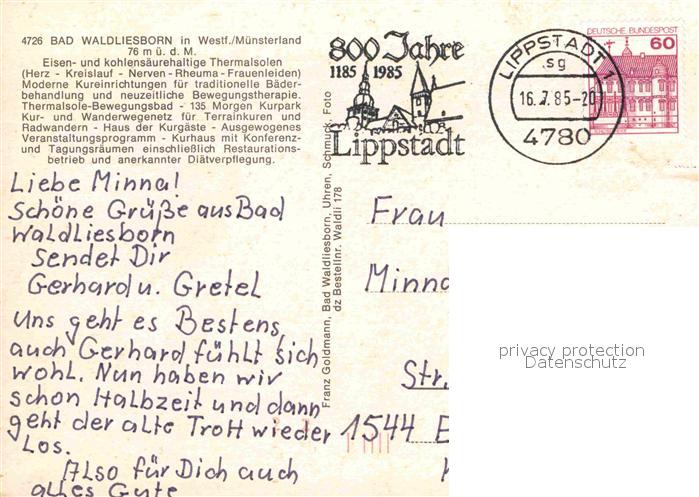 4726 BAD WALDLIESBORN in Westf./Münsterland
76 m ü. d. M.
Eisen- und kohlensäurehaltige Thermalsolen
(Herz - Kreislauf - Nerven - Rheuma - Frauenleiden)
Moderne Kureinrichtungen für traditionelle Bäder-
behandlung und neuzeitliche Bewegungstherapie.
Thermalsole-Bewegungsbad - 135 Morgen Kurpark
Kur- und Wanderwegenetz für Terrainkuren und
Radwandern - Haus der Kurgäste - Ausgewogenes
Veranstaltungsprogramm - Kurhaus mit Konferenz-
und Tagungsräumen einschließlich Restaurations-
betrieb und anerkannter Diätverpflegung.
Liebe Minna!
Schöne Grüße aus Bad
Waldliesborn
sendet Dir
Gerhard u. Gretel
Uns geht es Bestens,
auch Gerhard fühlt sich
wohl. Nun haben wir
schon Halbzeit und dann
geht der alte Trott wieder
Los.
Also für Dich auch
alles Gute
Franz Goldmann, Bad Waldliesborn, Uhren, Schmuck, Foto
dz Bestellnr. Waldli 178
800 Jahre
1185 1985
Lippstadt
LIPPSTADT 1
sg
16.7.85-20
4780
DEUTSCHE BUNDESPOST
60
Frau
Minna
Str.
1544 E
privacy protection
Datenschutz